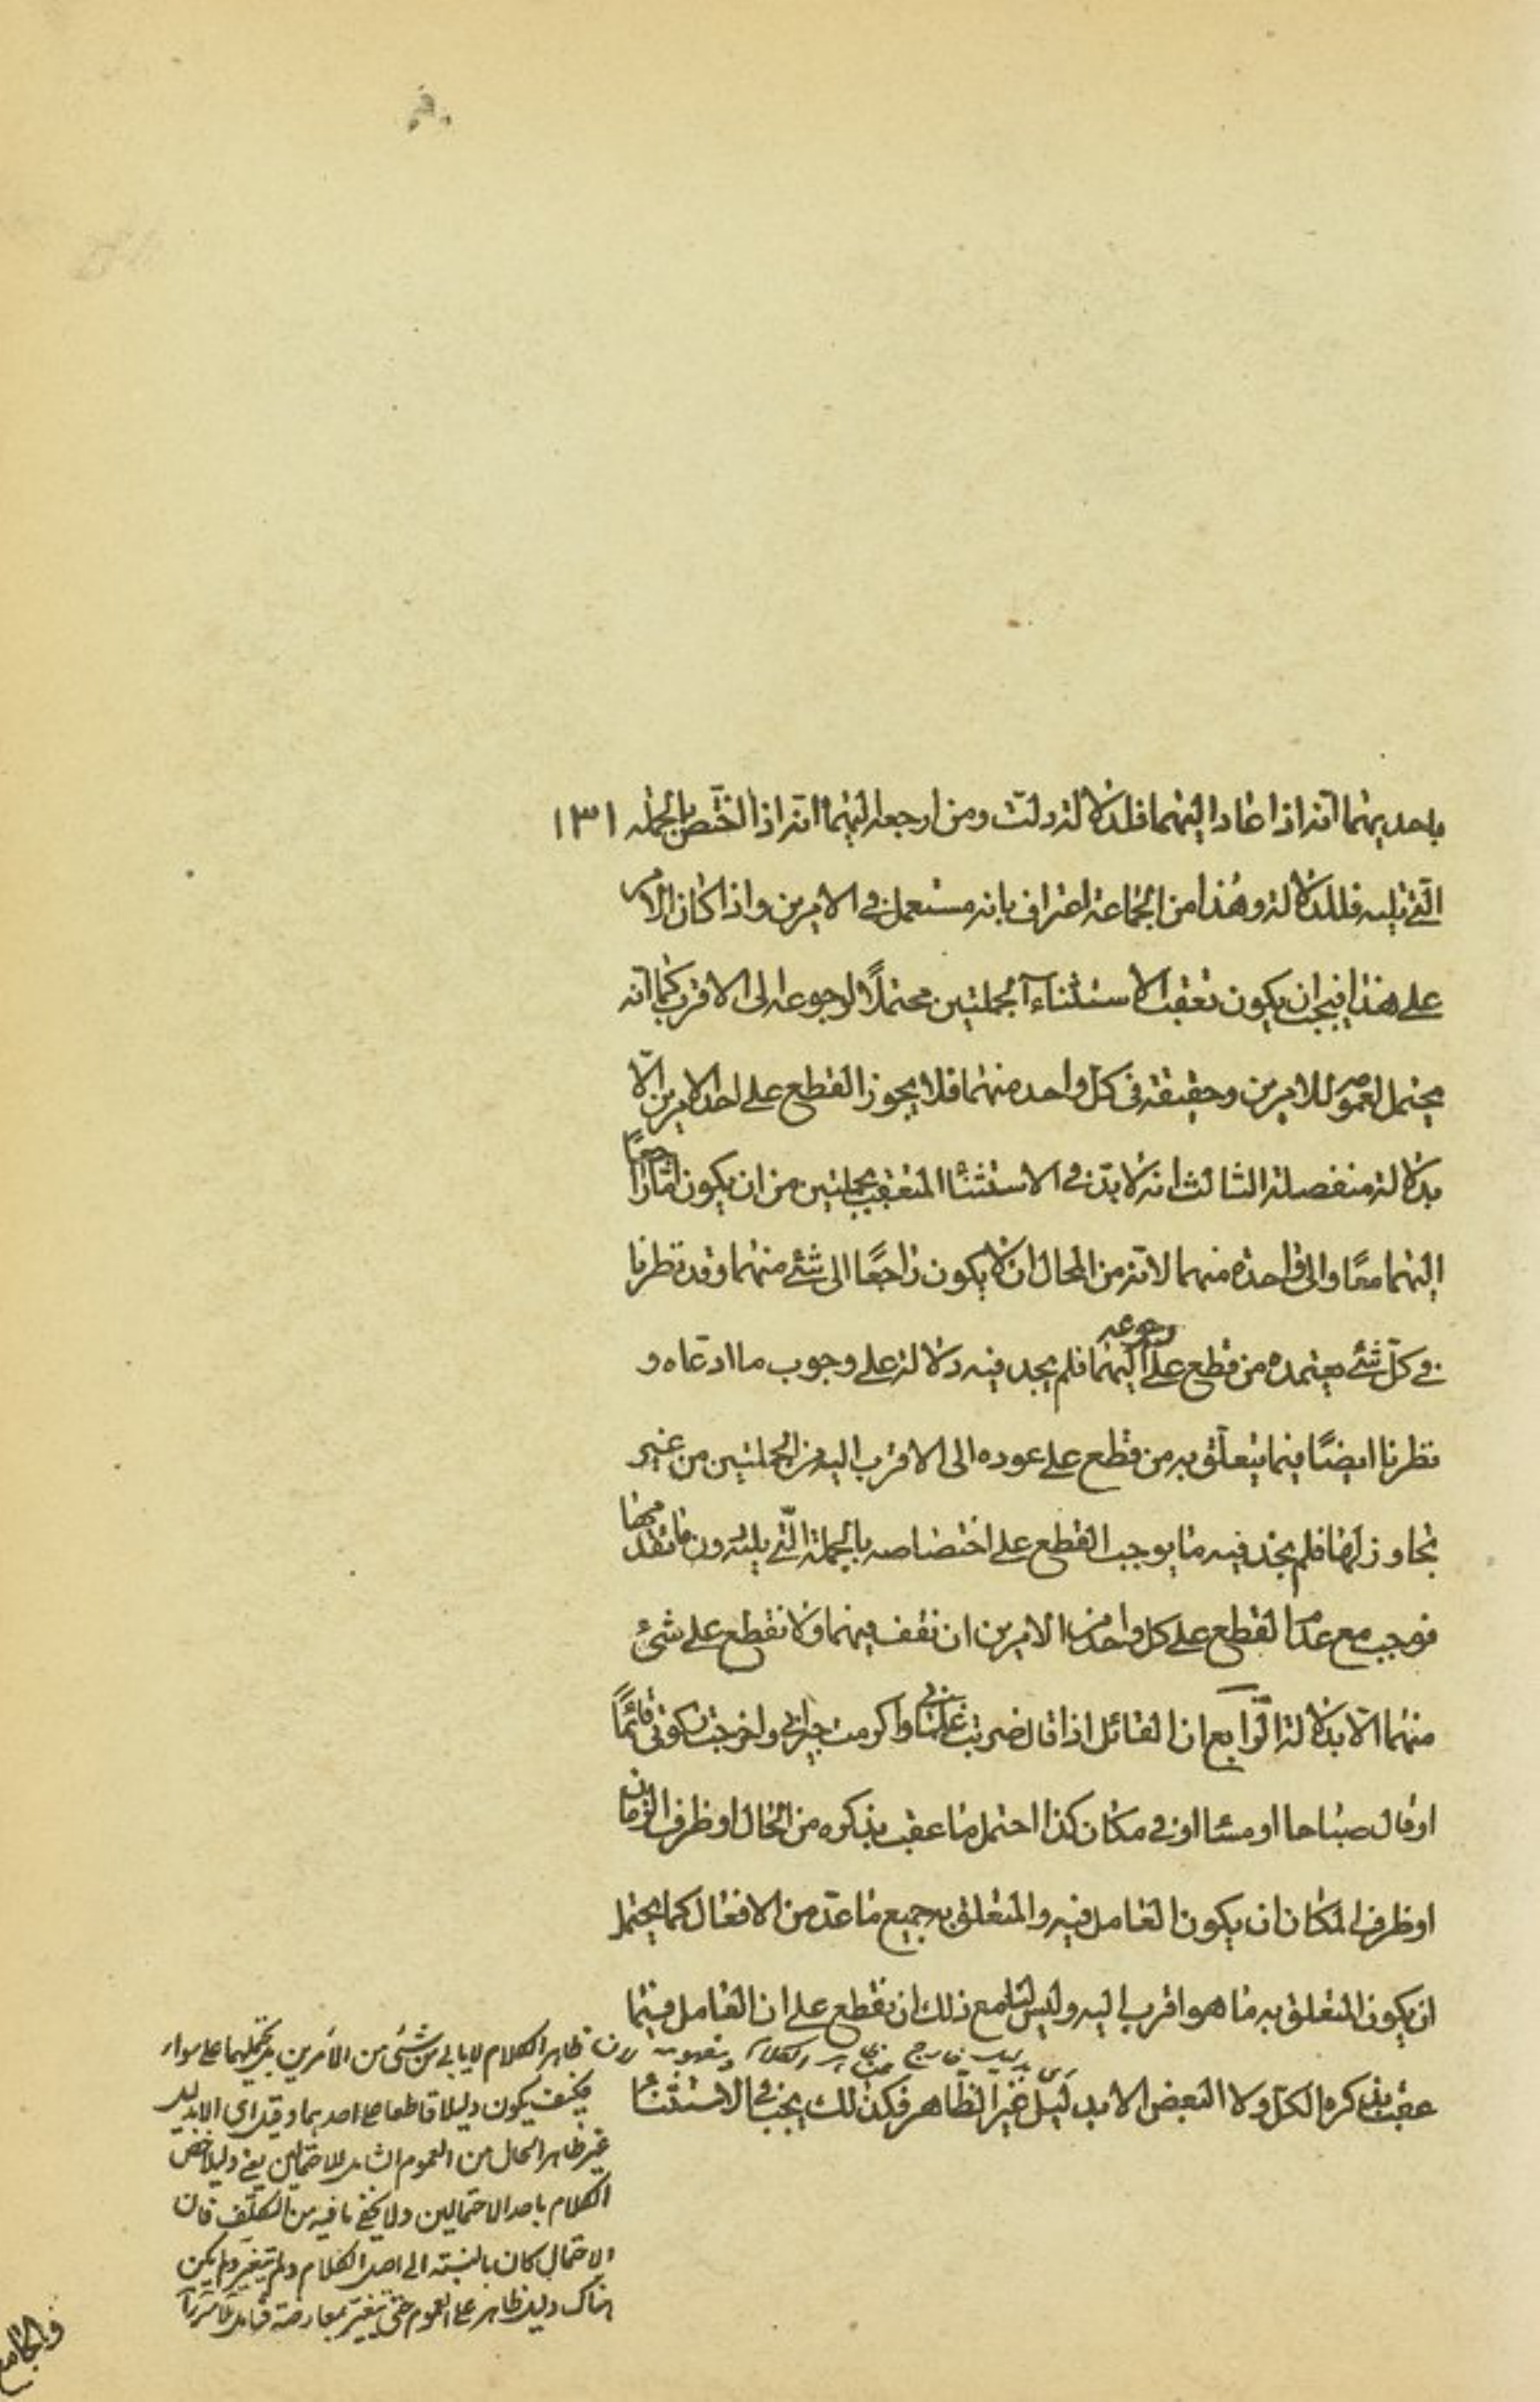 باحديهما انه اذا عاد اليهما فلدلالة دلت ومن ارجعه اليهما انه اذا اختص بالجملة ١٣١
التي تليه فللدلالة وهذا من الجماعة اعتراف بانه مستعمل في الامرين واذا كان الامر
على هذا فيجب ان يكون تعقب الاستثناء الجملتين محتملًا لرجوعه الى الاقرب كما انه
محتمل لعمومه للامرين وحقيقة في كل واحد منهما فلا يجوز القطع على احد الامرين الّا
بدلالة منفصلة الثالث انه لا بدّ في الاستثناء المتعقب بجملتين من ان يكون اما راجعًا
اليهما معًا او الى واحدة منهما لانه من المحال ان لا يكون راجعًا الى شئ منهما وقد نظرنا
في كلّ شئ يعتمده من قطع على رجوعه اليهما فلم يجد فيه دلالة على وجوب ما ادعاه و
نظرنا ايضًا فيما يتعلّق به من قطع على عوده الى الاقرب اليه من الجملتين من غير
تجاوز لها فلم نجد فيه ما يوجب القطع على اختصاصه بالجملة الّتي يليه دون ما تقدمها
فوجب مع عدم القطع على كل واحد من الامرين ان نقف فيهما ولا نقطع على شئ
منهما الّا بدلالة الرّابع ان القائل اذا قال ضربت غلماني واكرمت جيراني واخرجت زكوتي قائمًا
او قال صباحا او مسا او في مكان كذا احتمل ما عقب بذكره من الحال او ظرف الزمان
او ظرف المكان ان يكون العامل فيه والمتعلق به جميع ما عدّ من الافعال كما يحتمل
ان يكون المتعلق به ما هو اقرب اليه وليس لنا مع ذلك ان نقطع على ان العامل فيما
عقب بذكره الكل ولا البعض الا بدليل غير الظاهر فكذلك يجب في الاستثناء
اى بدليل خارج عن ظاهر الكلام
لان ظاهر الكلام لا يابى من شئ من الامرين بل يحتملهما على سواء
فكيف يكون دليلا قاطعا على احدهما وقيل اى الا بدليل
غير ظاهر الحال من العموم الشامل للاحتمالين يعني دليل
الكلام باحد الاحتمالين ولا يخفى ما فيه من التكلف فان
الاحتمال كان بالنسبة الى اصل الكلام ولم يتغير ولم يكن
هناك دليل ظاهر على العموم حتى يتغير بمعارضة
والجامع